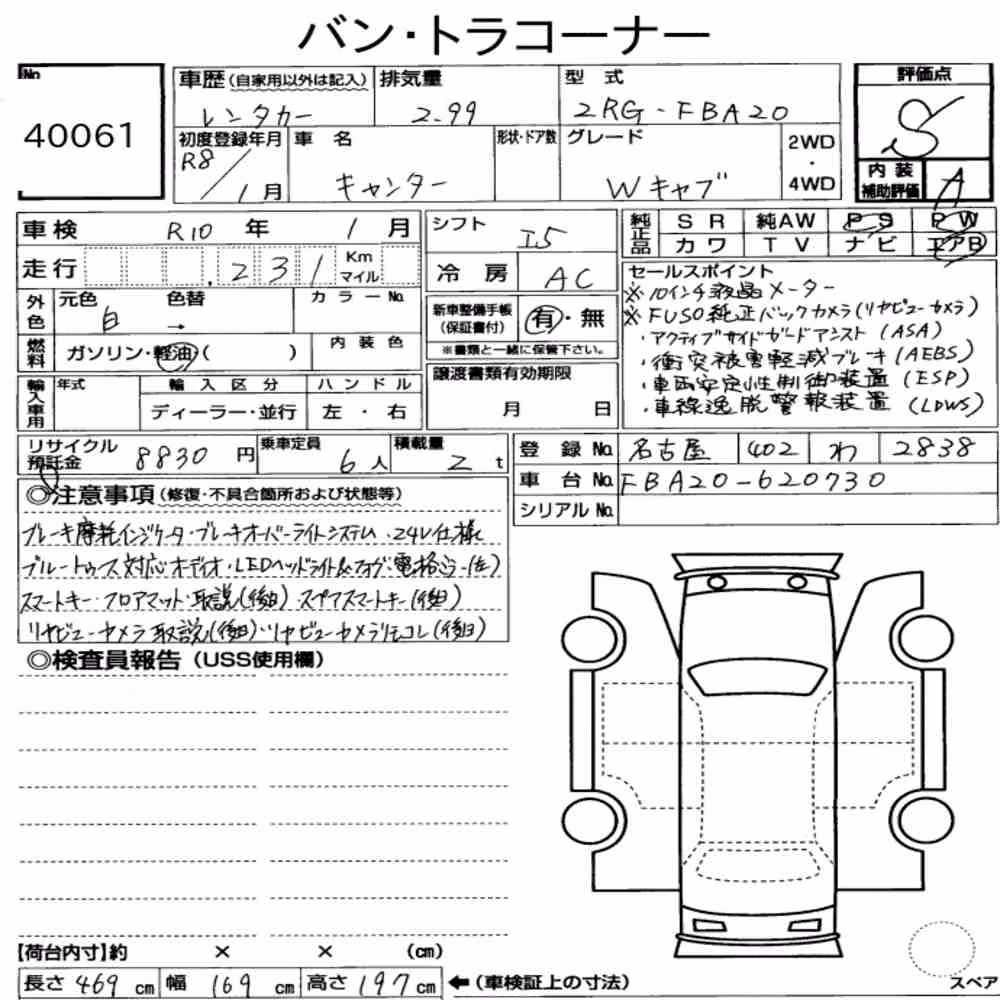 バン・トラコーナー
No
40061
車歴(自家用以外は記入)
レンタカー
排気量
2.99
型式
2RG-FBA20
評価点
S
初度登録年月
R8/1月
車名
キャンター
形状・ドア数
グレード
Wキャブ
2WD・4WD
内装補助評価
A
車検 R10年 1月
走行 231 Km マイル
シフト
I5
冷房 AC
純正品 SR 純AW PS PW
カワ TV ナビ エアB
外色 元色 白 色替 → カラーNo.
燃料 ガソリン・軽油( ) 内装色
新車整備手帳(保証書付) 有・無
※書類と一緒に保管下さい。
セールスポイント
※10インチ液晶メーター
※FUSO純正バックカメラ(リヤビューカメラ)
・アクティブサイドガードアシスト(ASA)
・衝突被害軽減ブレーキ(AEBS)
・車両安定性制御装置(ESP)
・車線逸脱警報装置(LDWS)
輸入車用 年式 輸入区分 ハンドル
ディーラー・並行 左・右
譲渡書類有効期限
月 日
リサイクル預託金 8830円 乗車定員 6人 積載量 2t
登録No. 名古屋 402 わ 2838
車台No. FBA20-620730
シリアルNo.
◎注意事項(修復・不具合箇所および状態等)
ブレーキ摩耗インジケータ・ブレーキオーバーライドシステム・24V仕様
ブルートゥース対応オーディオ・LEDヘッドライト&フォグ・電格ミラー(左)
スマートキー・フロアマット・取説(後日)スペアスマートキー(後日)
リヤビューカメラ取説(後日)・リヤビューカメラリモコン(後日)
◎検査員報告(USS使用欄)
【荷台内寸】約 × × (cm)
長さ 469cm 幅 169cm 高さ 197cm ←(車検証上の寸法)
スペア